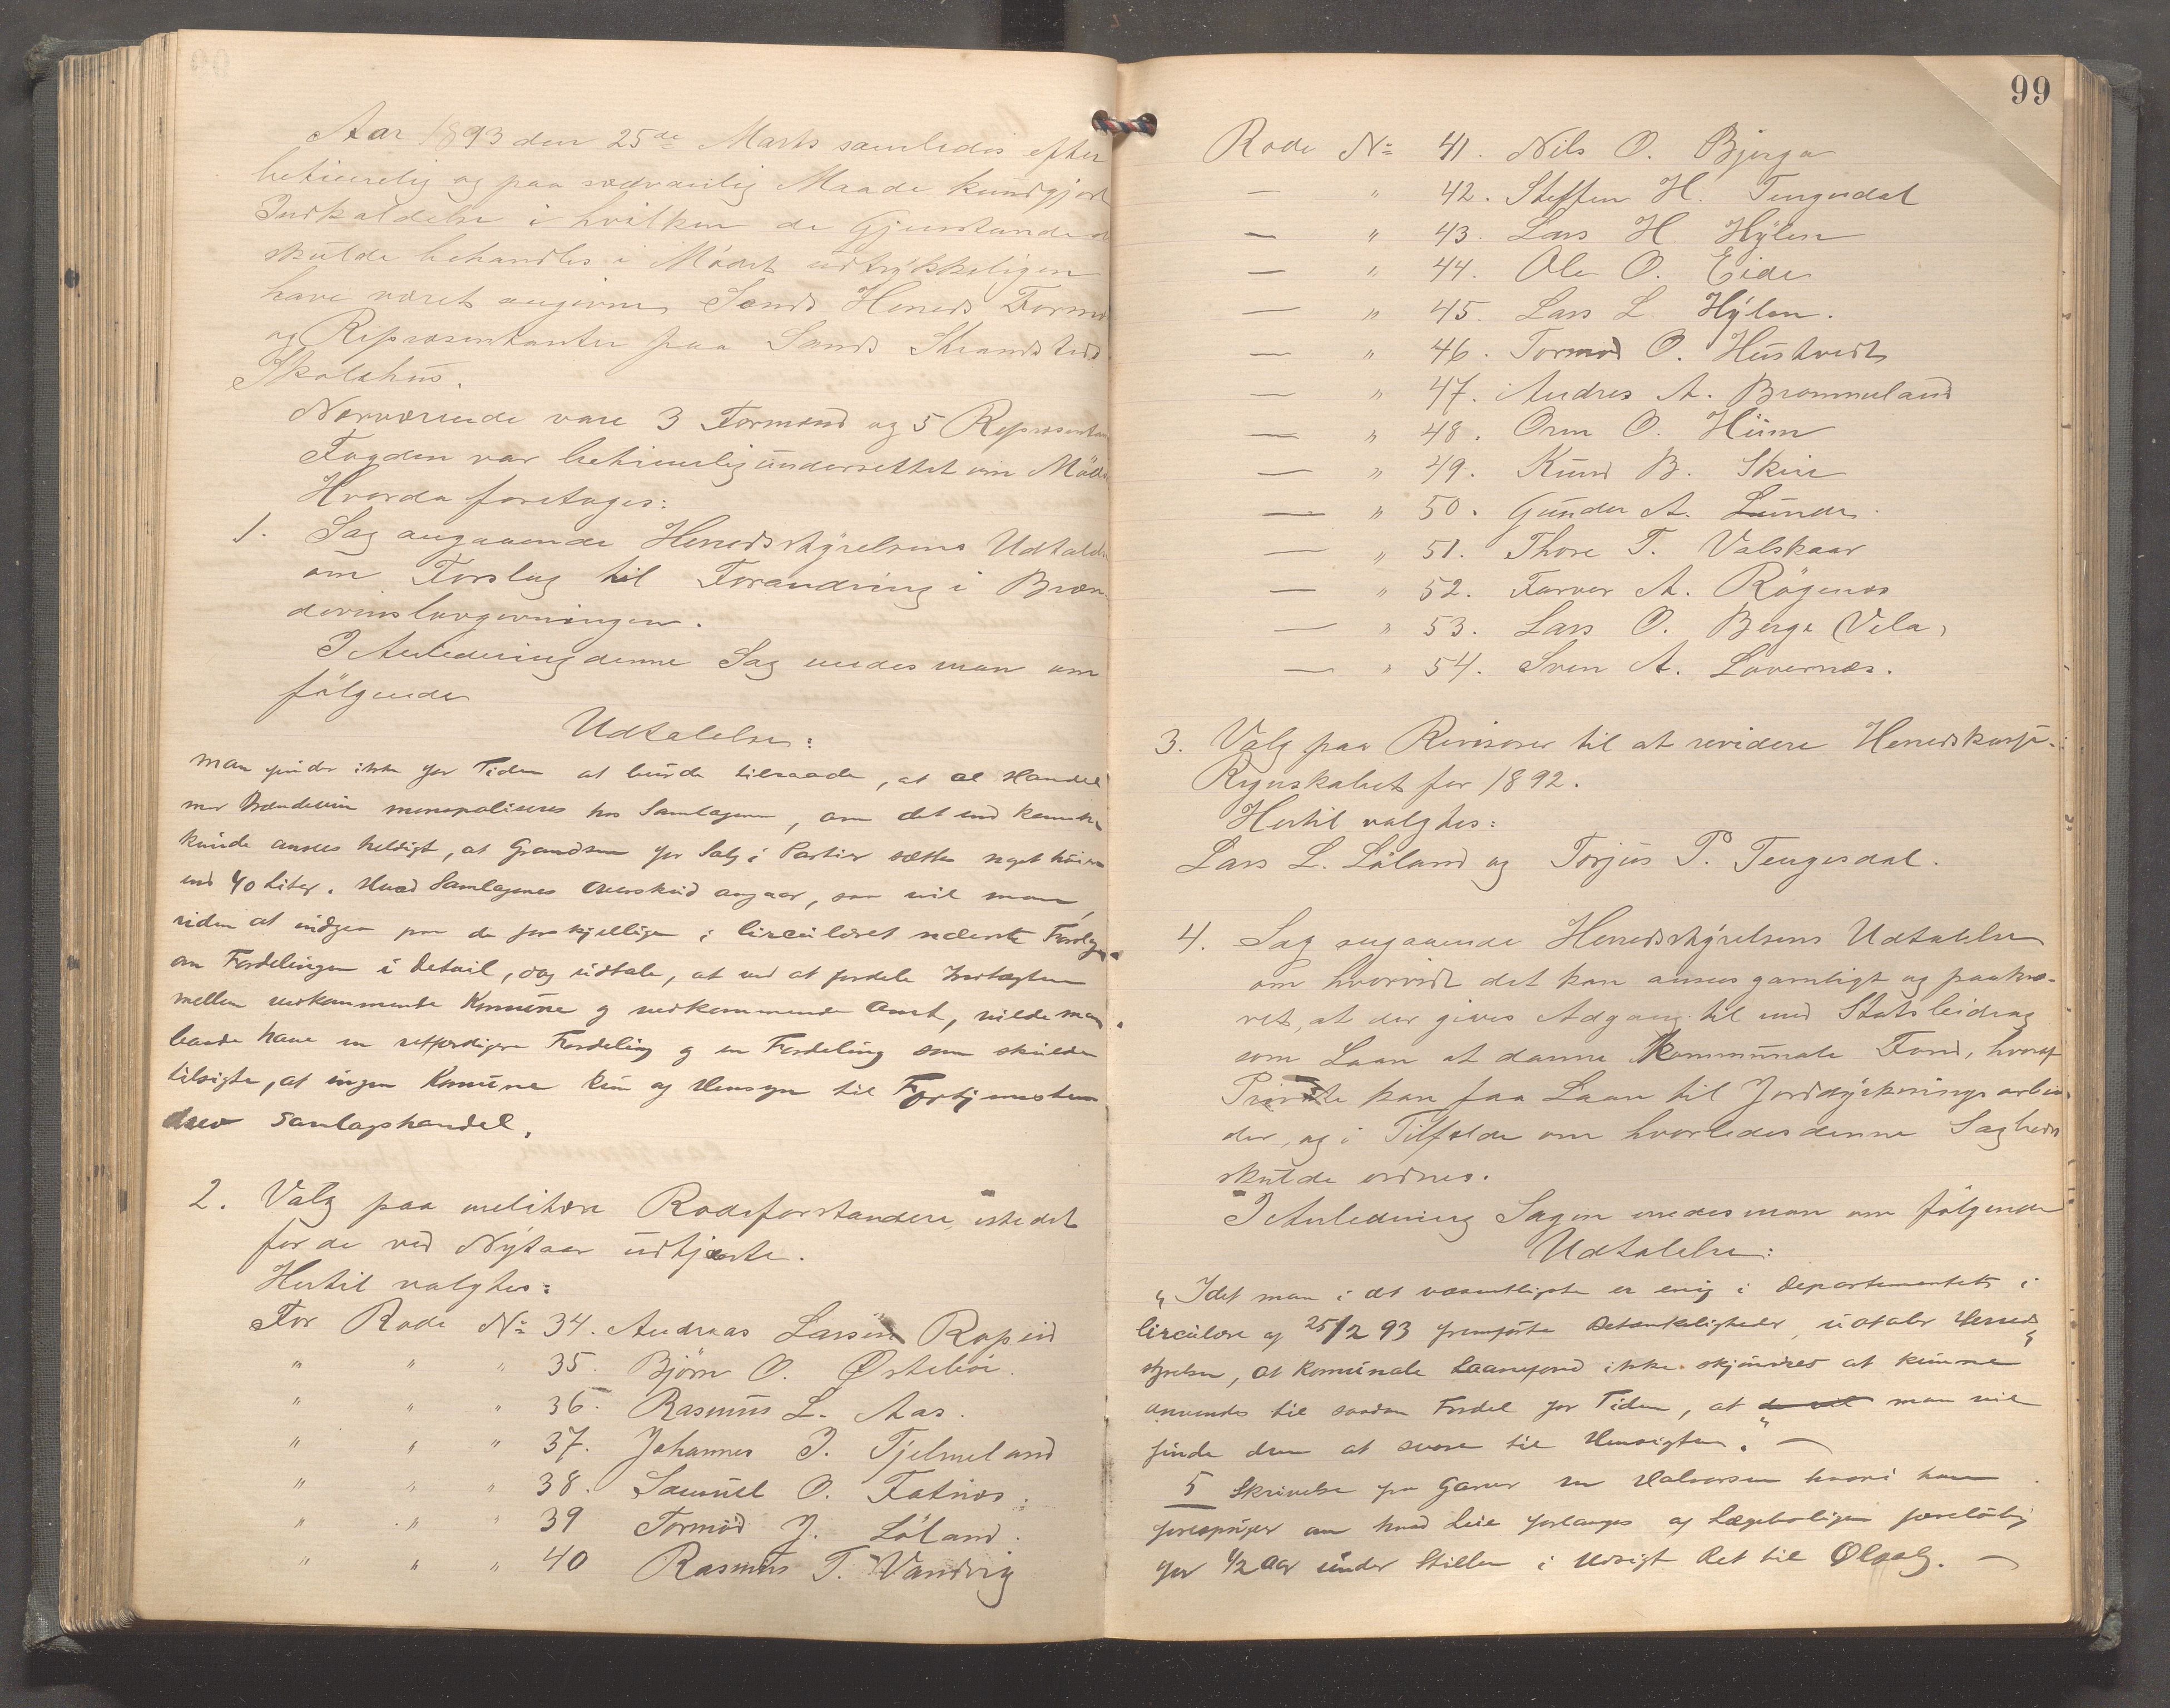 Aar 1893 den 25de Marts samledes efter
betimelig og paa sædvanlig Maade kundgjort
Indkaldelse i hvilken de Gjenstande
skulde behandles i Mödet udtrykkeligen
have været angivne Sands Herreds Formænd
og Repræsentanter paa Sands Strandsteds
Skolehus.
Nærværende vare 3 Formænd og 5 Repræsentan
Fogden var betimelig underrettet om Möde
Hvorda foretoges:
1. Sag angaaende Herredsstyrelsens Udtalelse
om Forslag til Forandring i Bræn-
devinslovgivningen.
I Anledning denne Sag enedes man om
fölgende
Udtalelse:
Man finder ikke for Tiden at burde tilraade, at al Handel
med Brændevin monopoliseres hos Samlagene, om det end kanske
kunde ansees heldigt, at Grændsen for Salg i Partier sættes noget höiere
end 40 Liter. Hvad Samlagenes Overskud angaar, saa vil man,
uden at indgaa paa de forskjellige i Circulæret nævnte Forslag
om Fordelingen i Detail, dog udtale, at ved at fordele Indtægten
mellem vedkommende Komune og vedkommende Amt, vilde man
baade have en retfærdigere Fordeling og en Fordeling som skulde
tilsigte, at ingen Komune kun af Hensyn til Fortjenesten
drev Samlagshandel.
2. Valg paa melitære Rodeforstandere istedet
for de ved Nytaar udtjente.
Hertil valgtes:
For Rode No 34. Andreas Larsen Ropeid
" " " 35. Björn O. Østeböe.
" " " 36. Rasmus L. Aas.
" " " 37. Johannes J. Tjelmeland
" " " 38. Samuel O. Fatnes.
" " " 39 Tormod J. Löland.
" " " 40 Rasmus T. Vandvig
99
Rode No 41. Nils O. Bjerga
— " 42. Steffen H. Tengesdal
— " 43. Lars H. Hylen
— " 44. Ole O. Eide
— " 45. Lars L. Hylen.
— " 46. Tormod O. Hustvedt
— " 47. Andres A. Brommeland
— " 48. Orm O. Hiim
— " 49. Knud B. Skeie
— " 50. Gunder A. Lunde.
— " 51. Thore T. Valskaar
— " 52. Farver A. Rögenes
— " 53. Lars O. Berge (Vela)
— " 54. Sven A. Lovernæs.
3. Valg paa Revisorer til at revidere Herredskasse-
Regnskabet for 1892.
Hertil valgtes:
Lars L. Löland og Torjus P. Tengesdal.
4. Sag angaaende Herredsstyrelsens Udtalelse
om hvorvidt det kan ansees gavnligt og paakræ-
vet, at der gives Adgang til med Statsbidrag
som Laan at danne Kommunale Fond, hvoraf
Private kan faa Laan til Jorddyrkningsarbei-
der, og i Tilfælde om hvorledes denne Sag heds
skulde ordnes.
I Anledning Sagen enedes man om fölgende
Udtalelse:
"Idet man i det væsentligste er enig i Departementets i
Circulære af 25/2 93 fremförte Betænkeligheder, udtaler Herreds
styrelsen, at Komunale Laanefond ikke skjönnes at kunne
anvendes til saadan Fordel for Tiden, at de vil man vil
finde dem at svare til Hensigten." —
5 Skrivelse fra Garver M Halvorsen hvori han
forespörger om hvad Leie forlanges af Lægeboligen foreløbig
for 1/2 Aar under Stillen i Udsigt Ret til Ølsalg. —